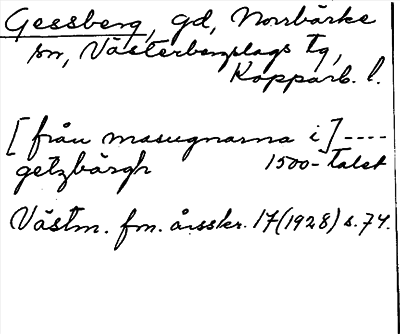 Gessberg, gd, Norrbärke
sn, Västerbergslags tg,
Kopparb. l.
[från masugnarna i] ----
getzbärgh 1500-talet
Västm. fm. årsskr. 17 (1928) s. 74.